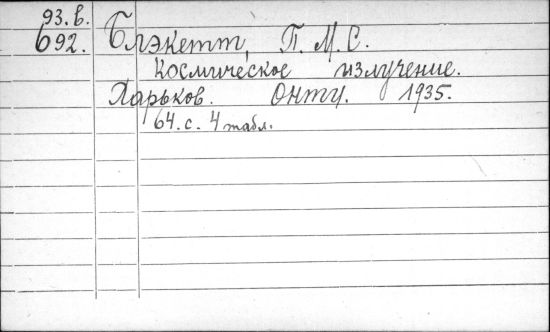 93.в.
692. Блэкетт, П. М. С.
Космическое излучение.
Харьков. ОНТУ. 1935.
64.с. 4 табл.